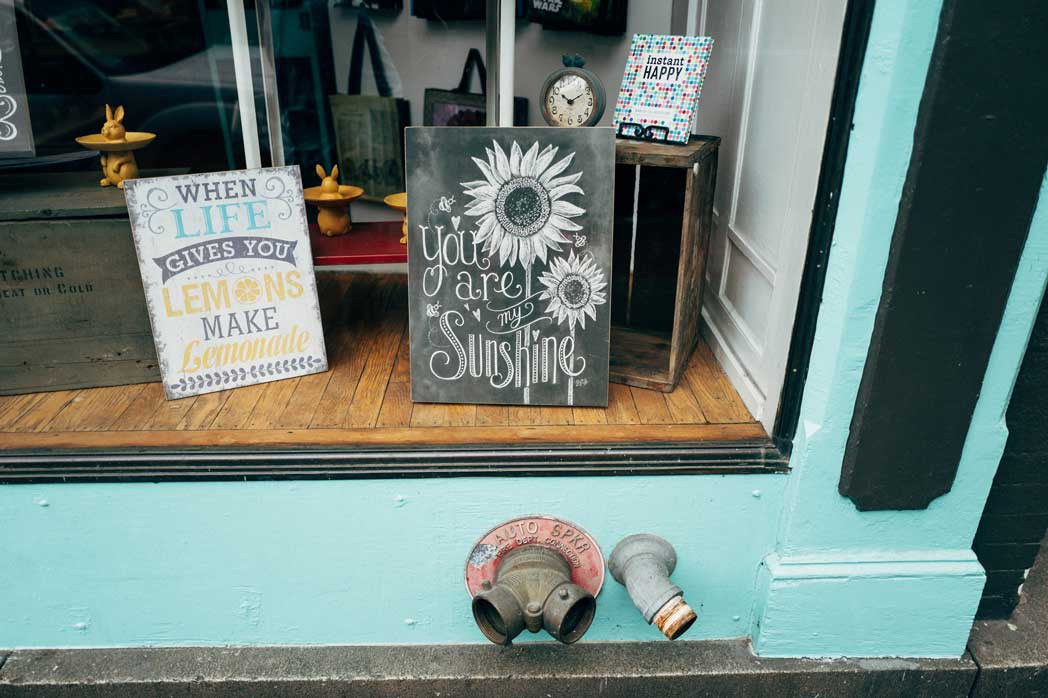 WARS
instant
HAPPY
WHEN
LIFE
GIVES YOU
LEMONS
MAKE
Lemonade
You
are
my
Sunshine
OR COLD
AUTO SPKR
FIRE DEPT. CONNECTION